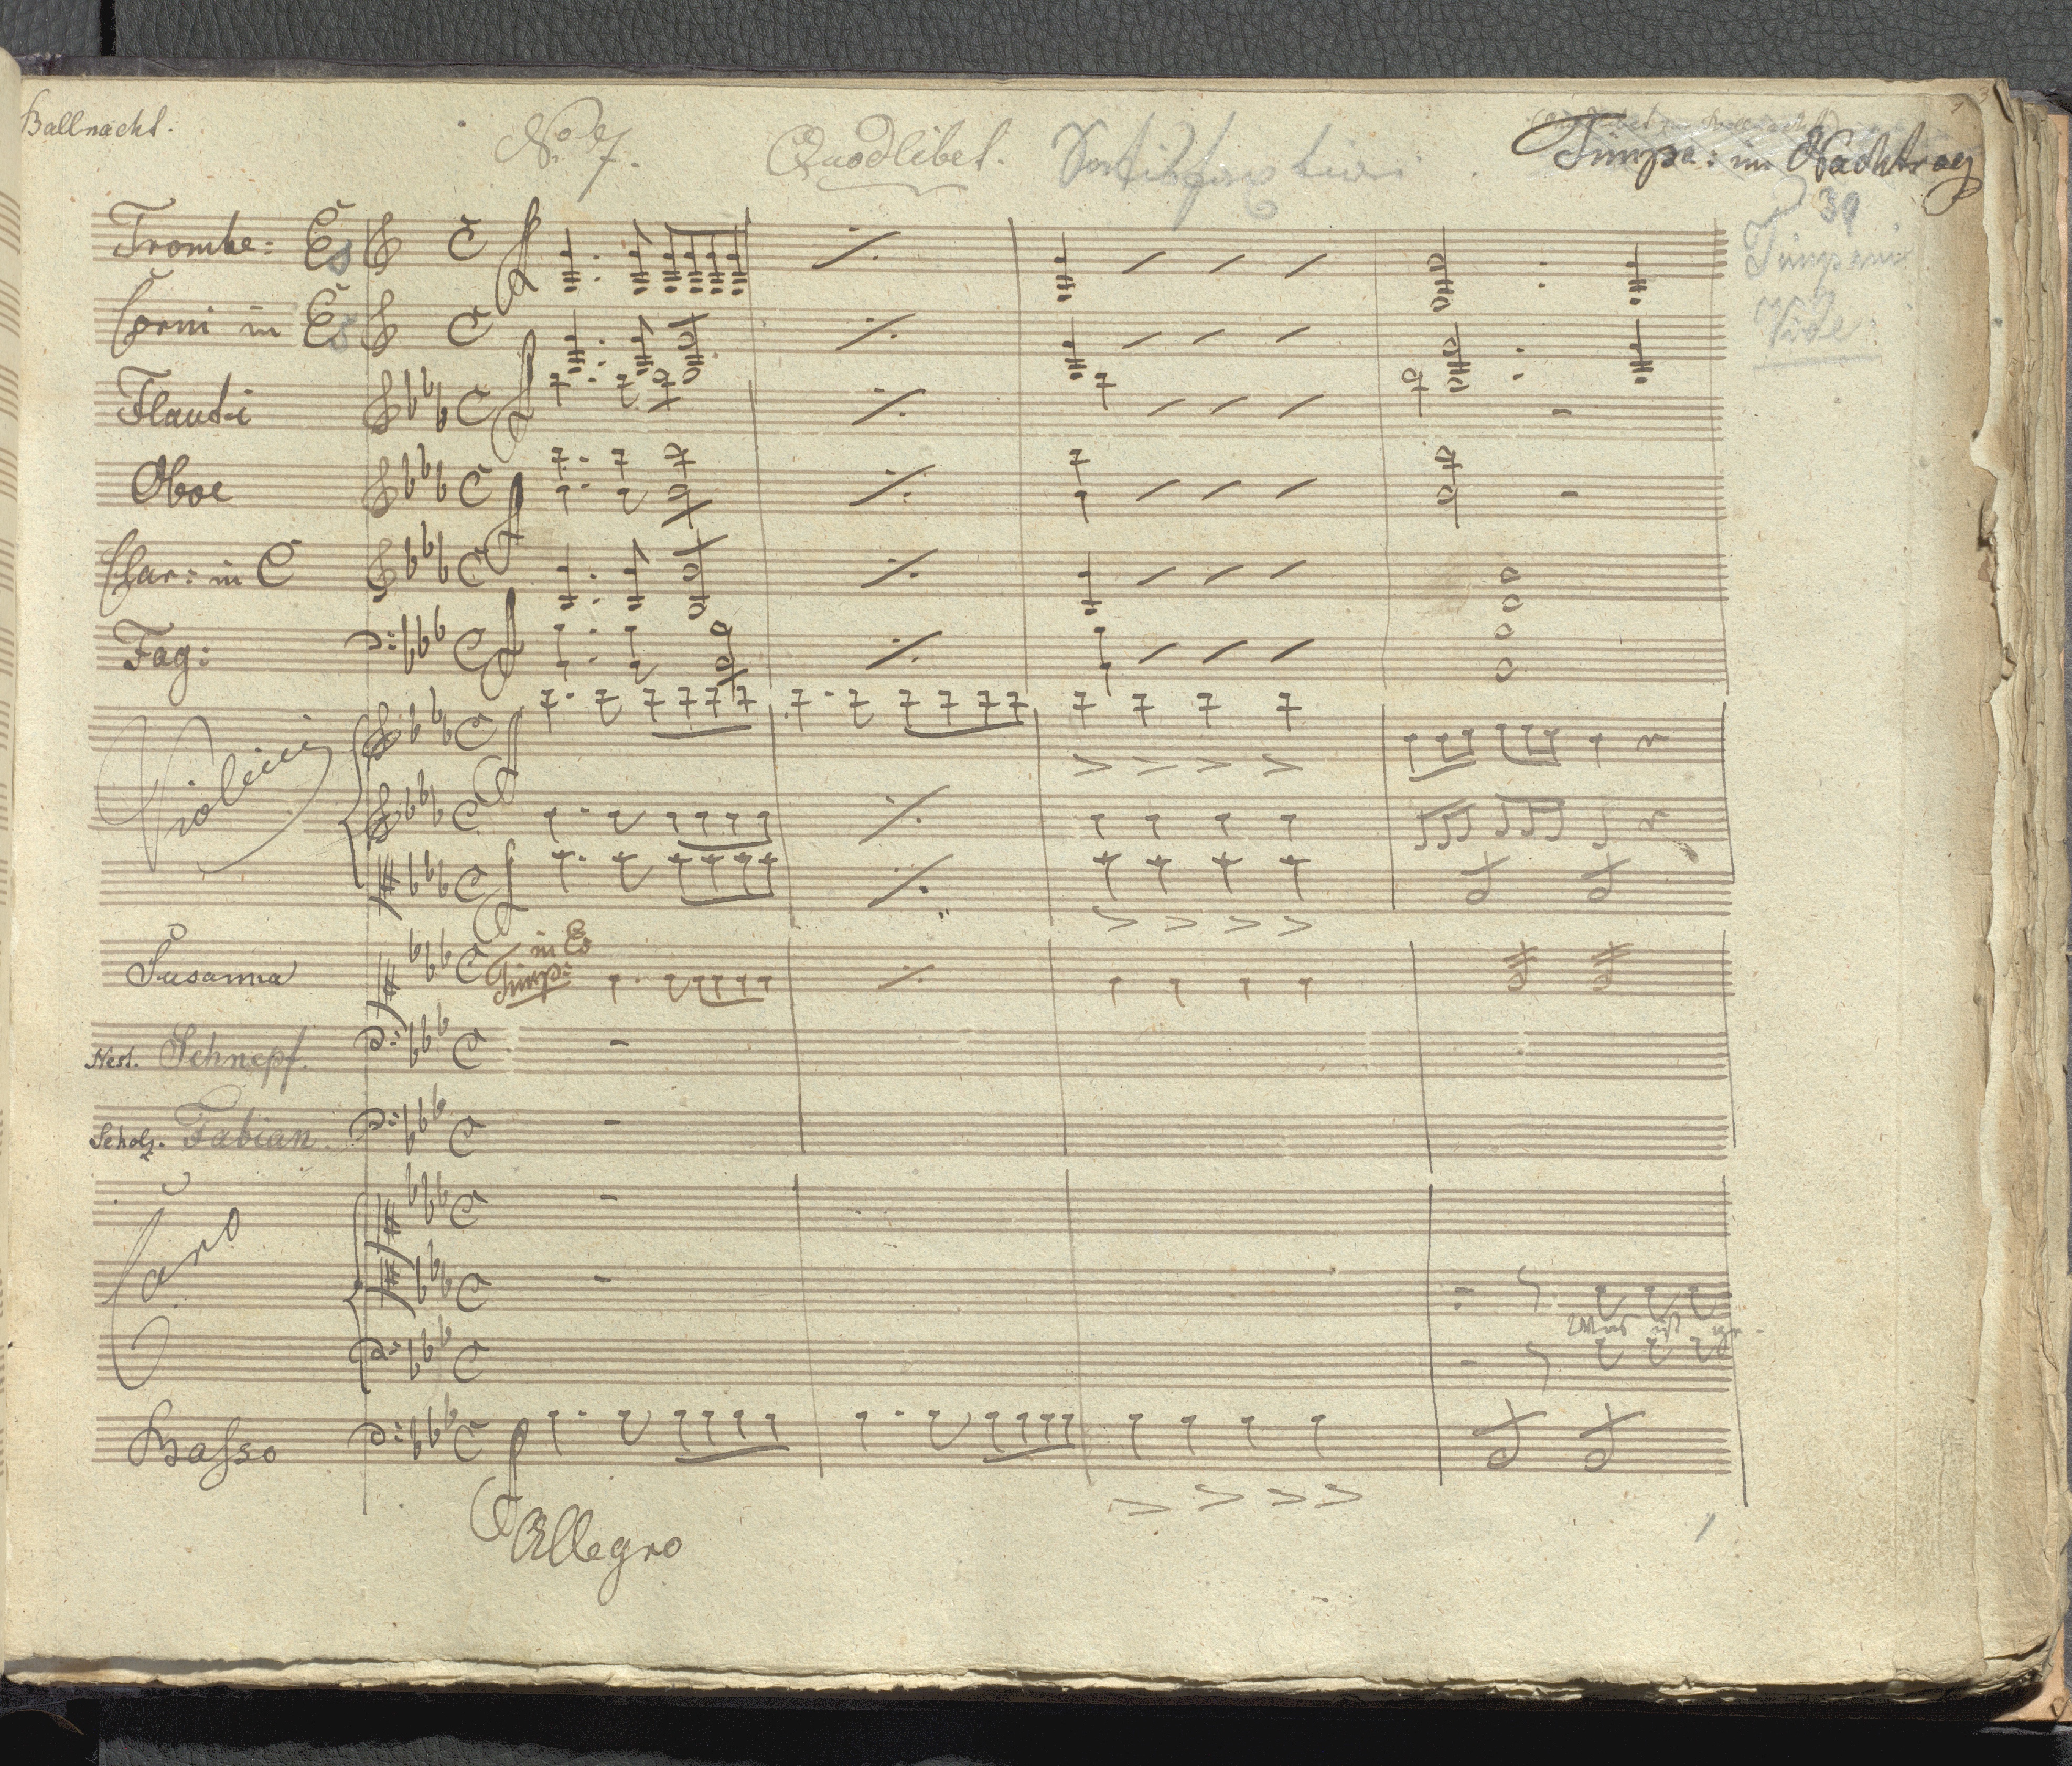 Ballnacht.
No. 7. Quodlibet.
Timpa: im Nachtrag
39
Timpani
Vide:
Trombe: Es
Corni in Es
Flauti
Oboe
Clar: in C
Fag:
Violini
in Es
Timp:
Susanna
Nest. Schnepf.
Scholz. Fabian
Coro
Was ist ge-
Basso
Allegro
1